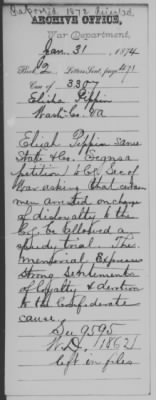 ARCHIVE OFFICE,
War Department,
Jan. 31 1874
Book 2 Letters Sent, page 471
Case of 3307
Elisha Pippin
Wash. Co. Va
Elijah Pippin same
State & Co. Organs a
petition to C.S. Sec of
War asking that certain
men arrested on charge
of disloyalty to the
C.S. be allowed a
speedy trial. This
memorial expresses
strong sentiments
of loyalty & devotion
to the Confederate
cause.
See 9595
W.D. 1862
left in files